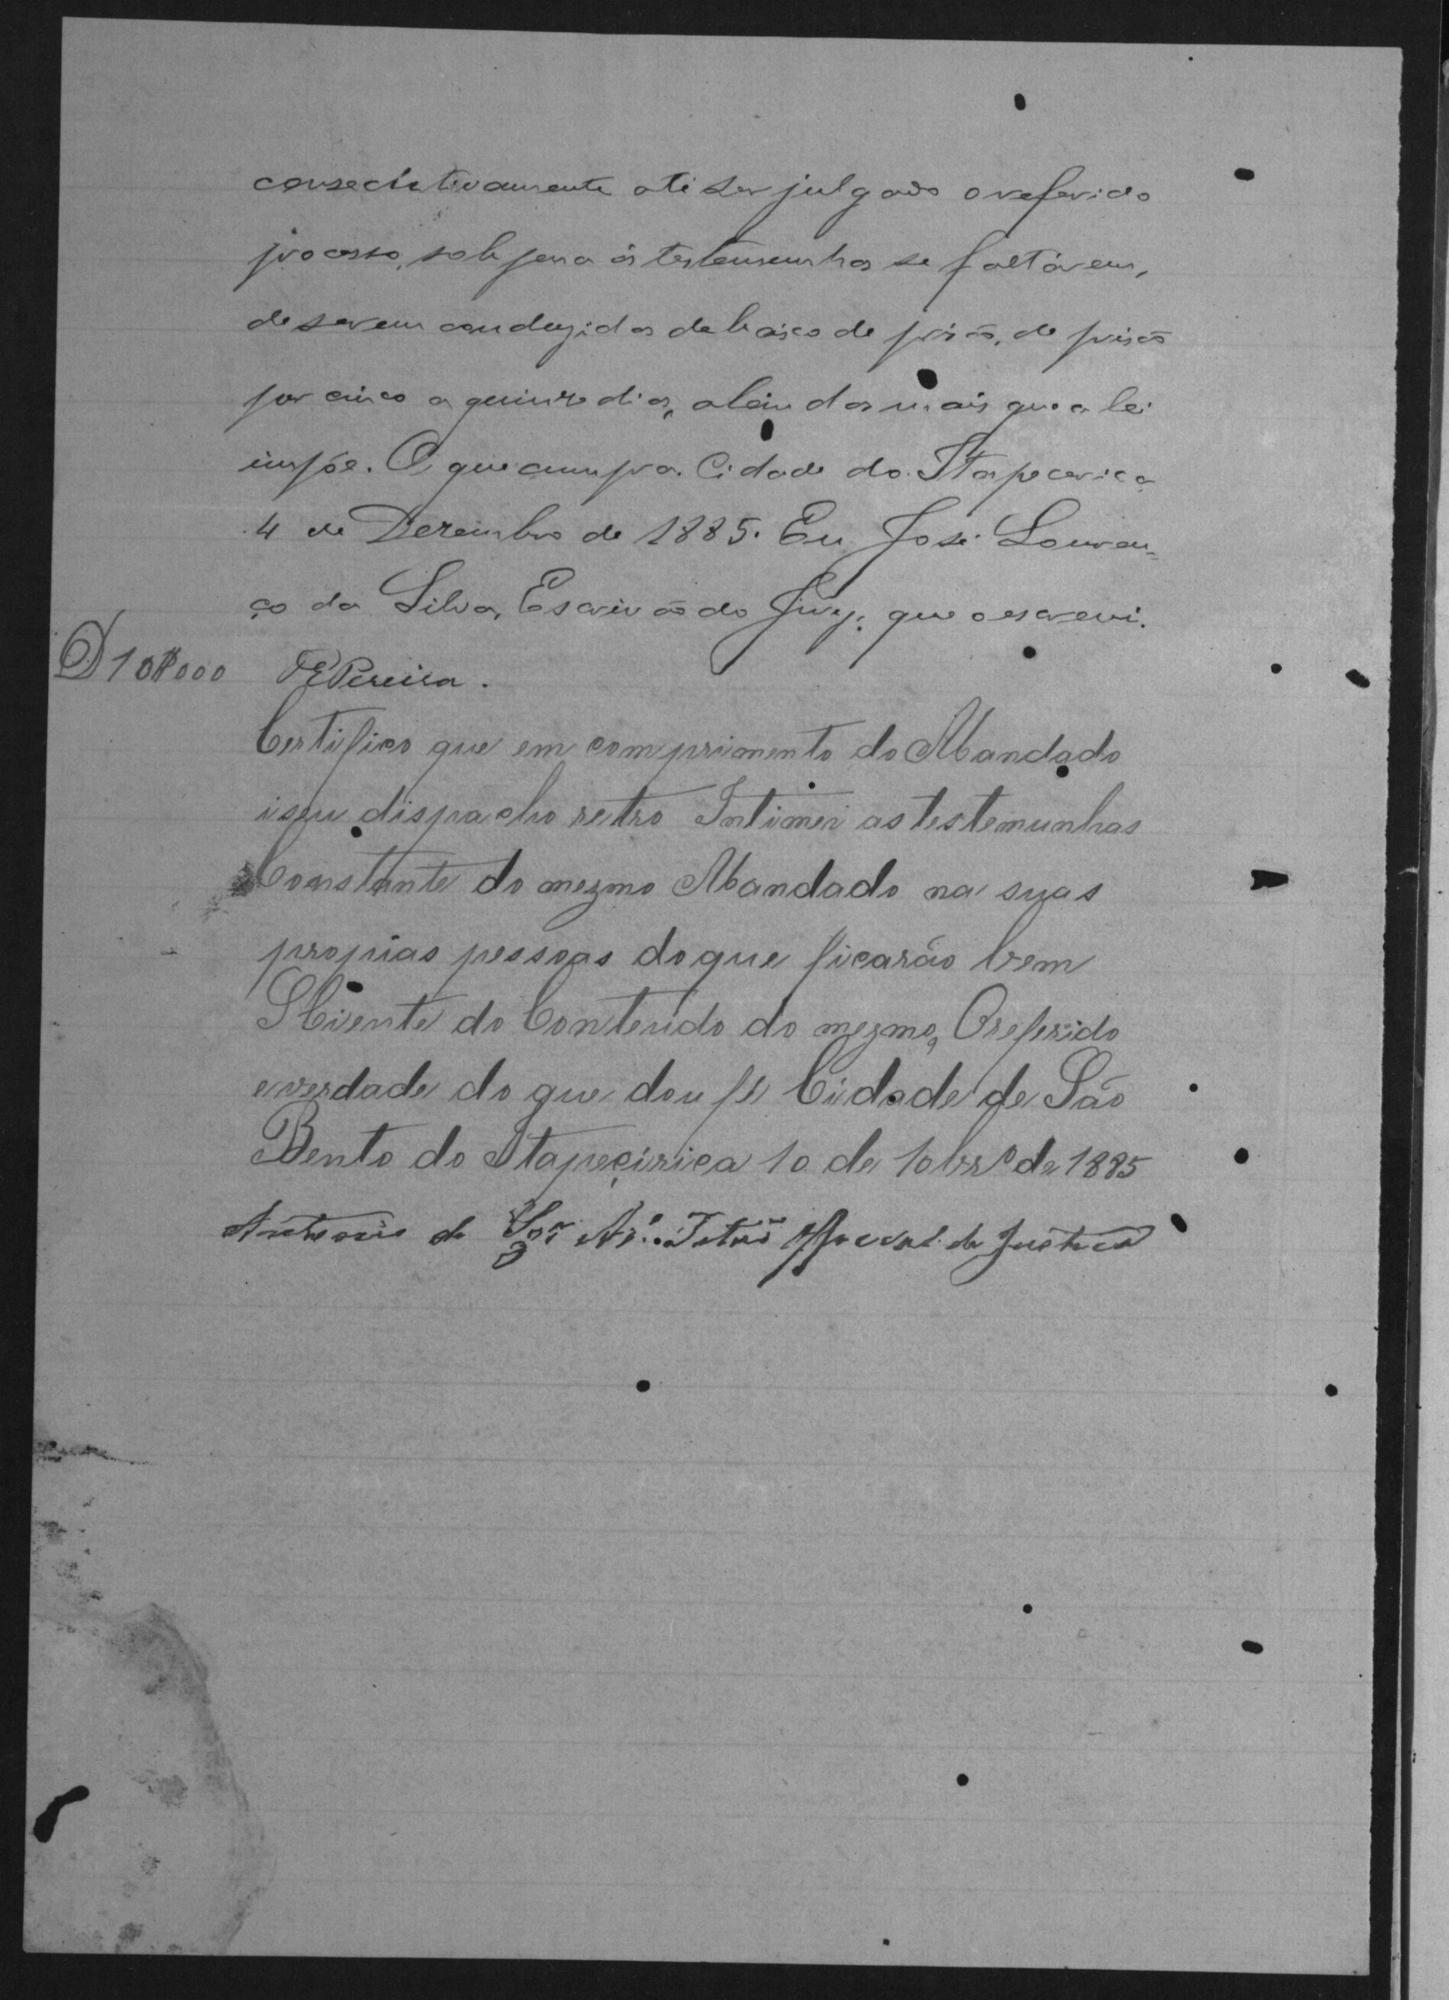 consecutivamente até ser julgado o referido
processo, sob pena ás testemunhas se faltárem,
de serem conduzidas debaixo de prisão, de prisão
por cinco a quinze dias, alem das mais que a lei
impõe. O que cumpra. Cidade do Itapecerica
4 de Dezembro de 1885. Eu José Louren-
ço da Silva, Escrivão do Jury, que o escrevi.
D 10$000 Pereira.
Certifico que em comprimento do Mandado
i seu dispacho retro Intimei as testemunhas
Constante do mezmo Mandado na suas
proprias pessoas do que ficarão bem
Sciente do Conteudo do mezmo, O referido
e verdade do que dou fé Cidade de São
Bento do Itapeçirica 10 de 10brº de 1885
Antonio da Official de Justiça